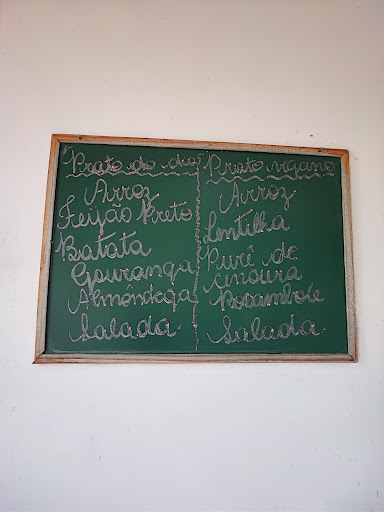 Prato do dia
Arroz
Feijão Preto
Batata
Gouranga
Almôndega
Salada
Prato vegano
Arroz
Lentilha
Purê de
cinoura
Rocambole
Salada